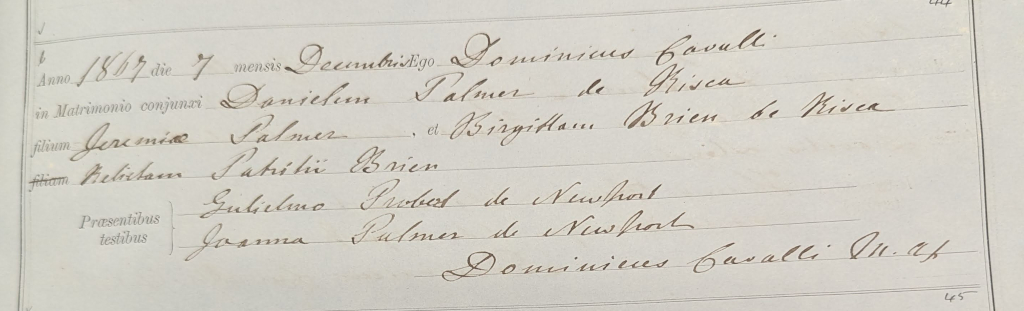 44
6
Anno 1867 die 7 mensis Decembris Ego Dominicus Cavalli
in Matrimonio conjunxi Danielem Palmer de Risca
filium Jeremiæ Palmer . et Birgittam Brien de Risca
filiam Relictam Patritii Brien
Præsentibus testibus
Gulielmo Probest de Newport
Joanna Palmer de Newport
Dominicus Cavalli M. Ap
45